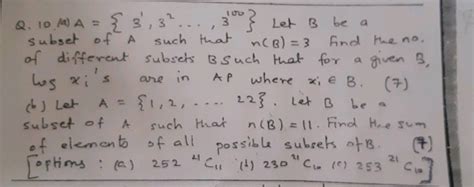 Q. 10 (a) A = { 3¹, 3² ..., 3¹⁰⁰ } Let B be a
subset of A such that n(B) = 3 find the no.
of different subsets B such that for a given B,
log xᵢ's are in AP where xᵢ ∈ B. (7)
(b) Let A = {1, 2, .... 22}. Let B be a
subset of A such that n(B) = 11. Find the sum
of elements of all possible subsets of B. (7)
[options : (a) 252 ²¹C₁₁ (b) 230 ²¹C₁₀ (c) 253 ²¹C₁₀]